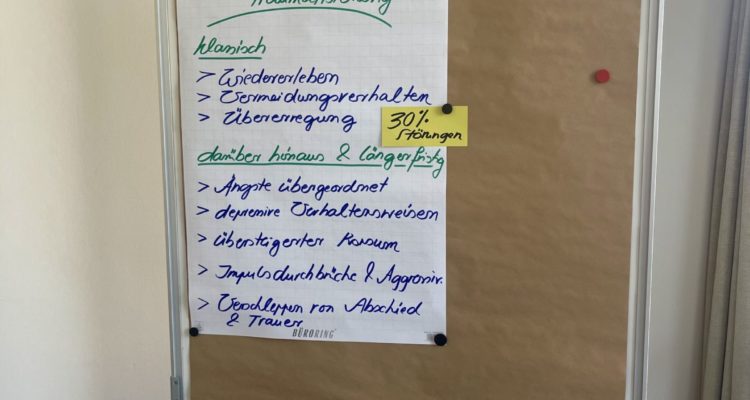 klassisch
> Wiedererleben
> Vermeidungsverhalten
> Übererregung
30%
Störungen
darüber hinaus & längerfristig
> Ängste übergeordnet
> depressive Verhaltensweisen
> übersteigerter Konsum
> Impulsdurchbrüche & Aggressiv.
> Verschleppen von Abschied
& Trauer
BÜRORING